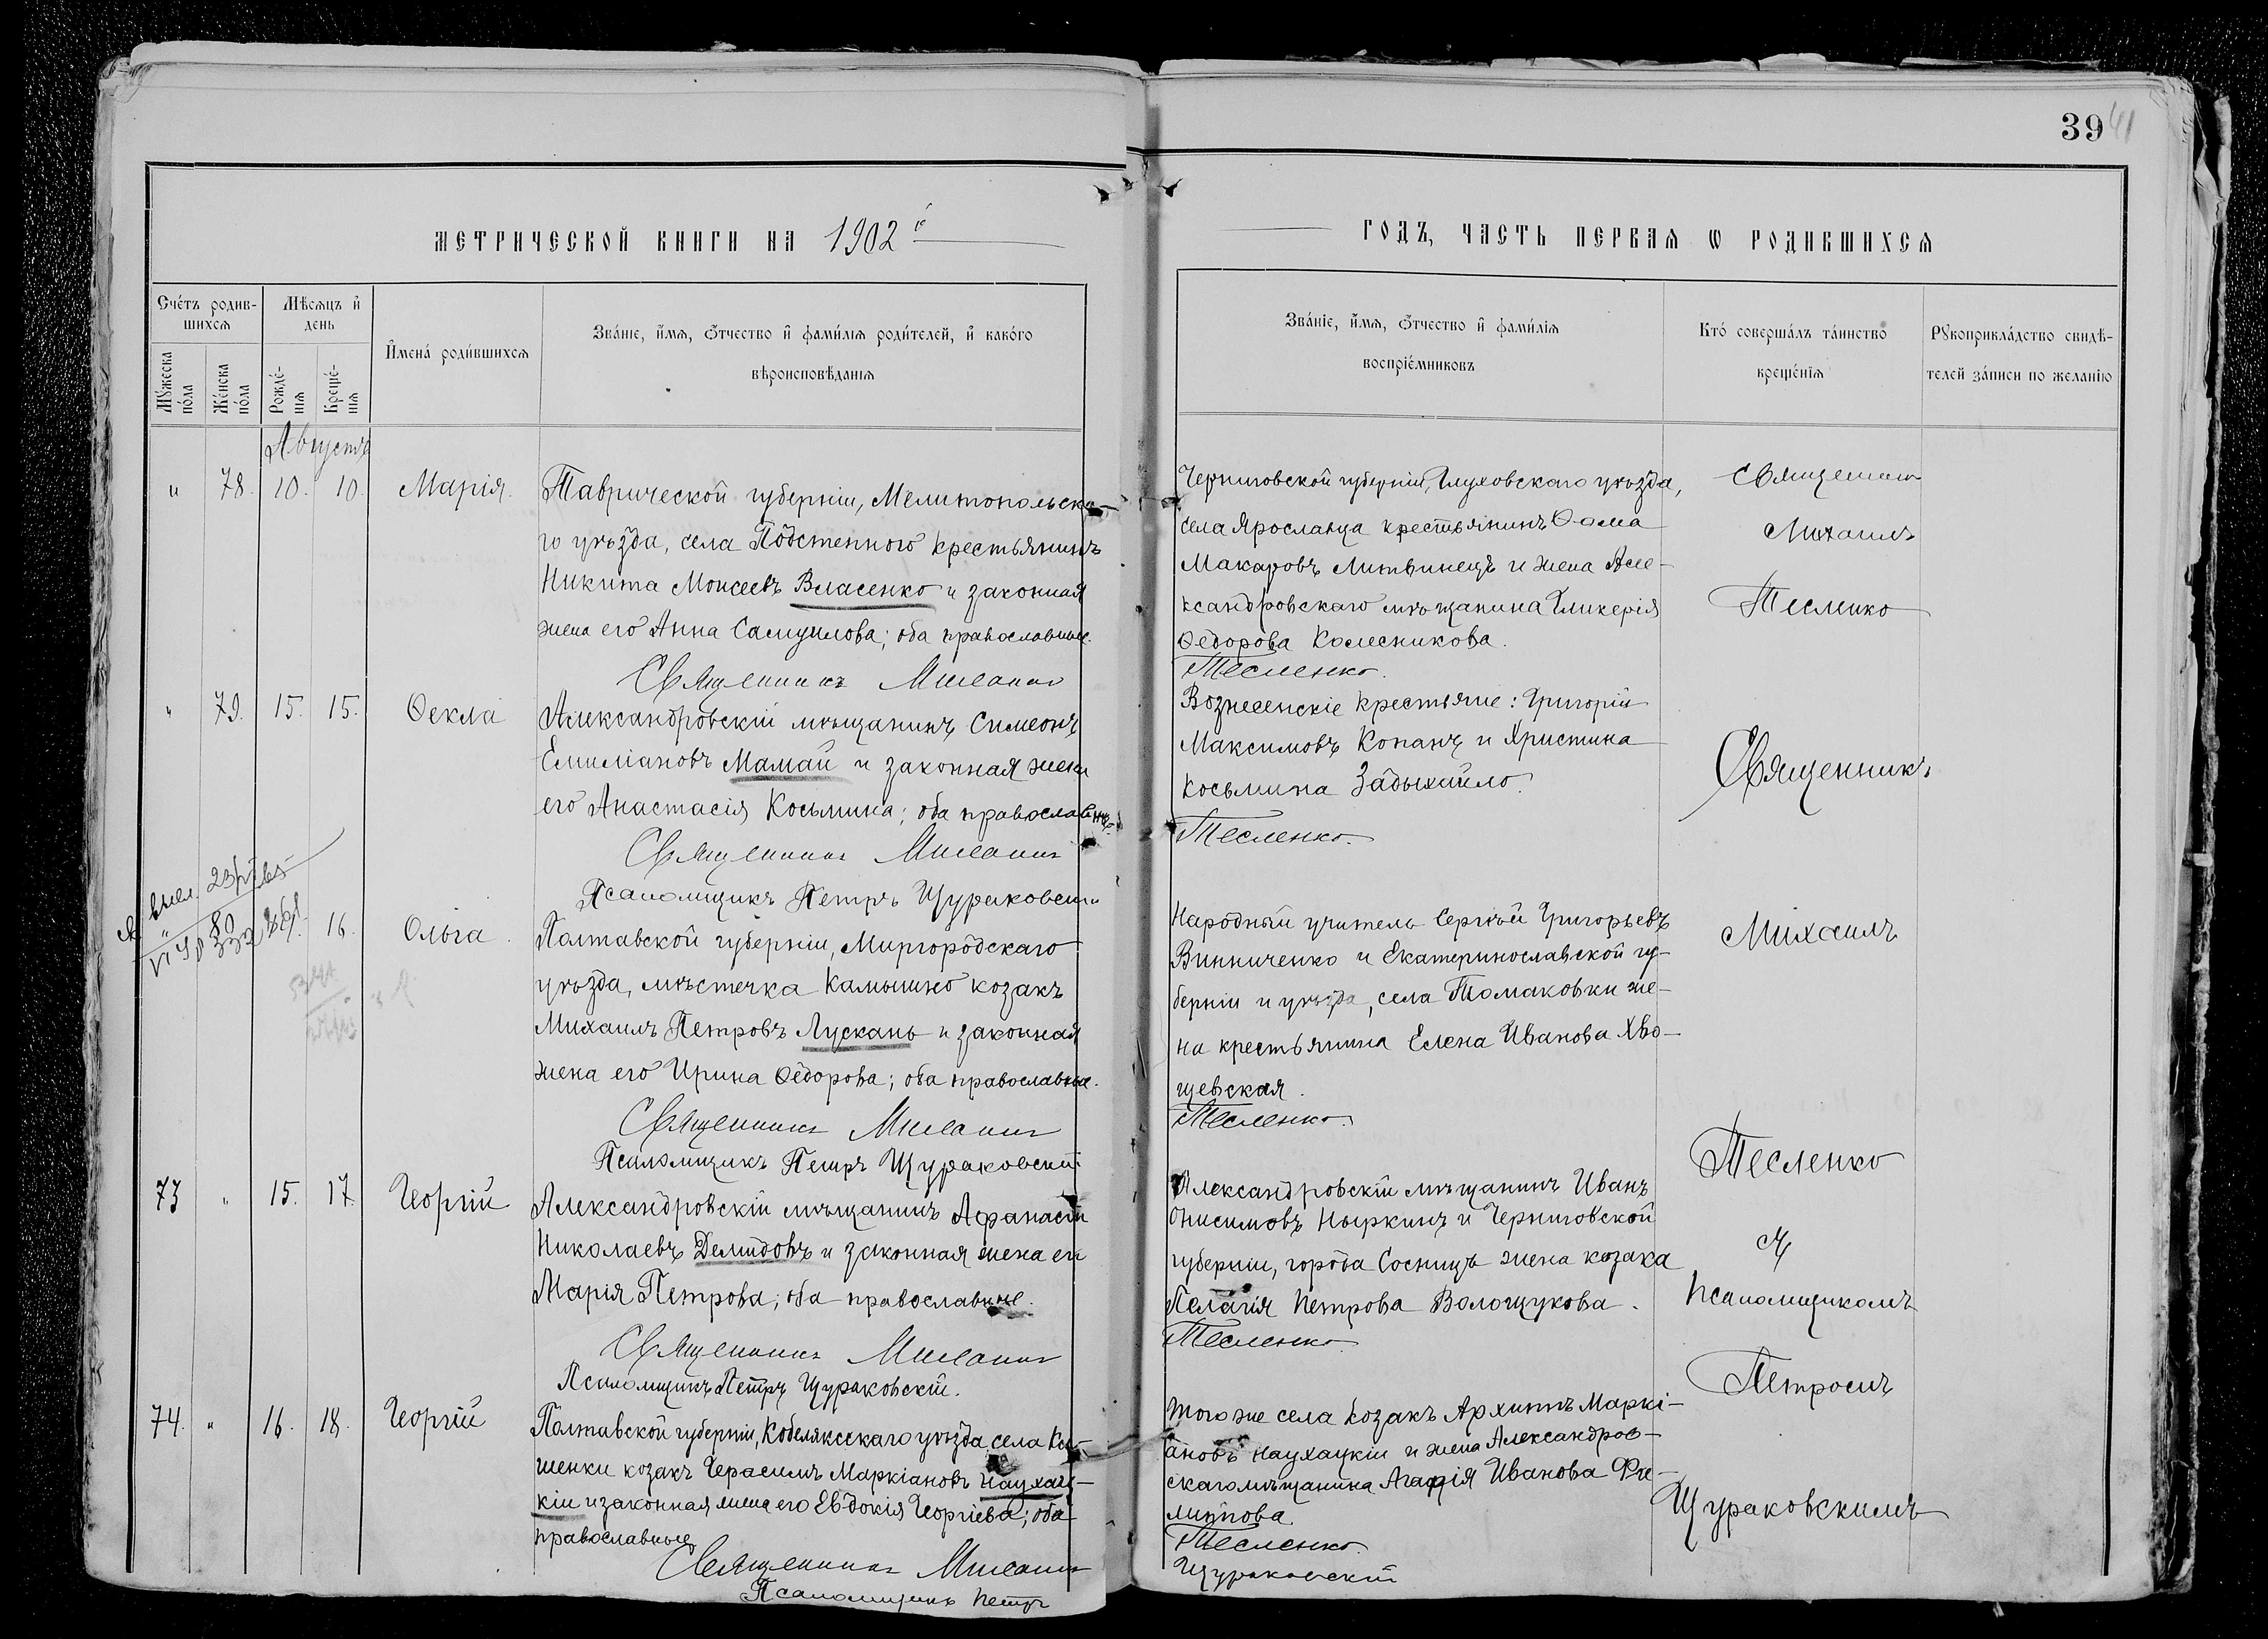 39 41
МЕТРИЧЕСКОЙ КНИГИ НА 1902й
ГОДЪ, ЧАСТЬ ПЕРВАЯ Ѡ РОДИВШИХСЯ
Счетъ родив-
шихся
Мѣсяцъ и
день
Мужеска
пола
Женска
пола
Рожде-
нія
Креще-
нія
Имена родившихся
Званіе, имя, отчество и фамилія родителей, и какого
вѣроисповѣданія
Званіе, имя, отчество и фамилія
воспріемниковъ
Кто совершалъ таинство
крещенія
Рукоприкладство свидѣ-
телей записи по желанію
Августъ
" 78. 10. 10. Марія.
Таврической губерніи, Мелитопольска-
го уѣзда, села Подстепного крестьянинъ
Никита Моисеевъ Власенко и законная
жена его Анна Самуилова; оба православные.
Священникъ Михаилъ
Черниговской губерніи, Глуховскаго уѣзда,
села Ярославца крестьянинъ Ѳома
Макаровъ Литвинецъ и жена Але-
ксандровскаго мѣщанина Гликерія
Ѳедорова Колесникова.
Тесленко.
" 79. 15. 15. Ѳекла
Александровскій мѣщанинъ Симеонъ
Емиліановъ Мамай и законная жена
его Анастасія Косьмина; оба православные
Священникъ Михаилъ
Псаломщикъ Петръ Щураковскій
Вознесенскіе крестьяне: Григорій
Максимовъ Копанъ и Христина
Косьмина Задыхайло.
Тесленко.
" 80 16. Ольга.
Полтавской губерніи, Миргородскаго
уѣзда, мѣстечка Камышно козакъ
Михаилъ Петровъ Лускань и законная
жена его Ирина Ѳедорова; оба православные.
Священникъ Михаилъ
Псаломщикъ Петръ Щураковскій
Народный учитель Сергѣй Григорьевъ
Винниченко и Екатеринославской гу-
берніи и уѣзда, села Томаковки же-
на крестьянина Елена Иванова Хво-
щевская.
Тесленко.
73 " 15. 17. Георгій
Александровскій мѣщанинъ Афанасій
Николаевъ Демидовъ и законная жена его
Марія Петрова; оба православные.
Священникъ Михаилъ
Псаломщикъ Петръ Щураковскій.
Александровскій мѣщанинъ Иванъ
Онисимовъ Ныркинъ и Черниговской
губерніи, города Сосницъ жена козака
Пелагія Петрова Волощукова.
Тесленко.
74. " 16. 18. Георгій
Полтавской губерніи, Кобелякскаго уѣзда, села Ки-
шенки козакъ Герасимъ Маркіановъ Наухац-
кій и законная жена его Евдокія Георгіева; оба
православные
Священникъ Михаилъ
Псаломщикъ Петръ
Того же села козакъ Архипъ Маркі-
ановъ Наухацкій и жена Александров-
скаго мѣщанина Агафія Иванова Фи-
липпова.
Тесленко.
Щураковскій
Священникъ
Михаилъ
Тесленко
Священникъ
Михаилъ
Тесленко
съ
псаломщикомъ
Петромъ
Щураковскимъ